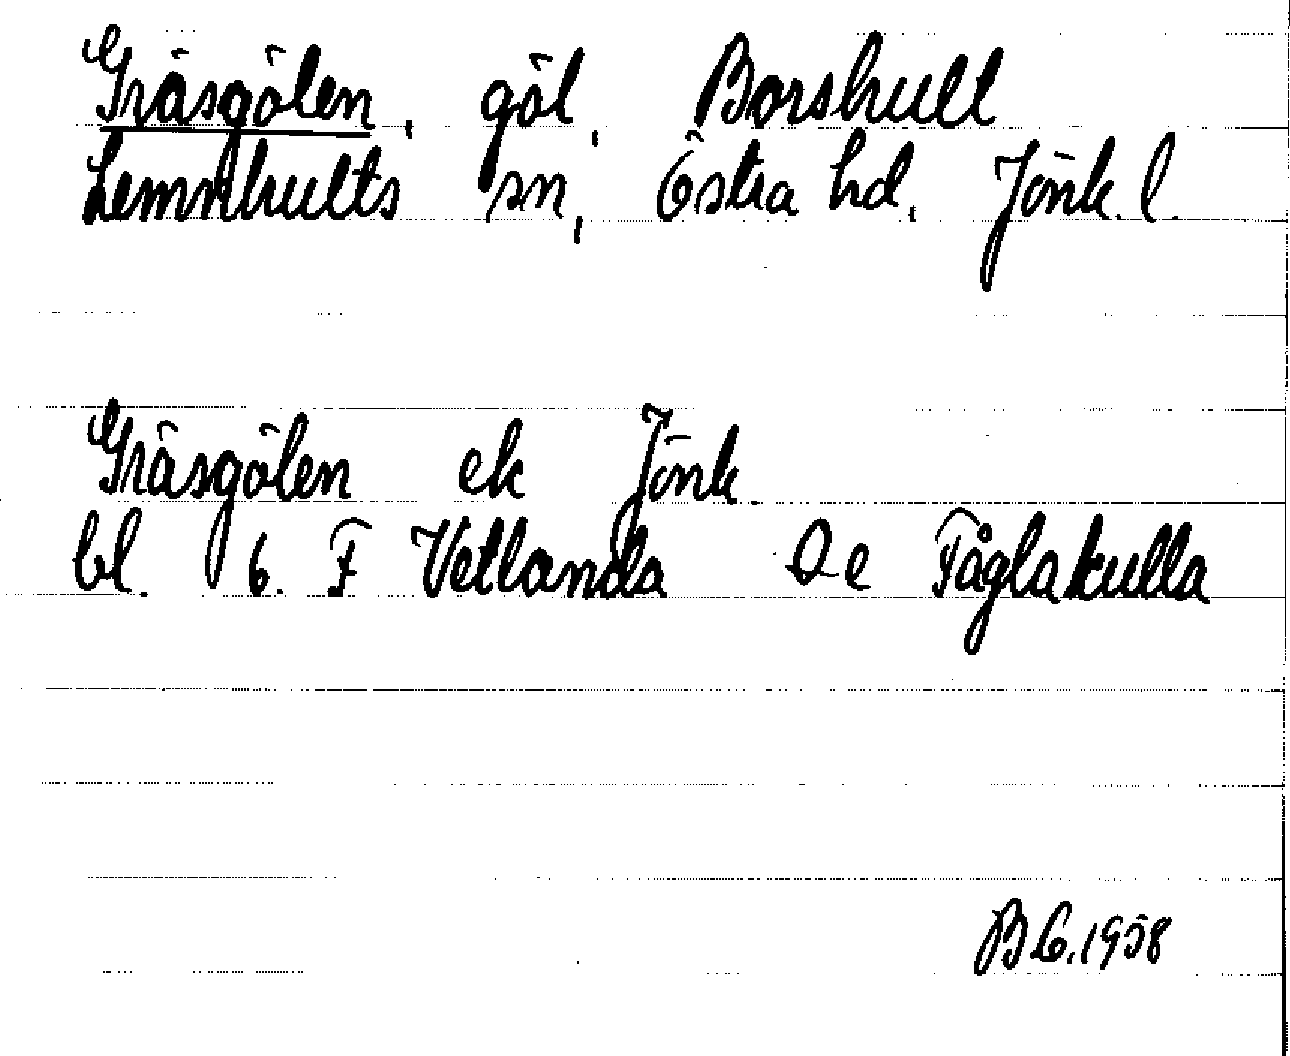 Gräsgölen, göl, Borshult
Lemnhults sn, Östra hd, Jönk. l.
Gräsgölen ek Jönk.
bl. 6. F Vetlanda De Fåglakulla
BG.1958